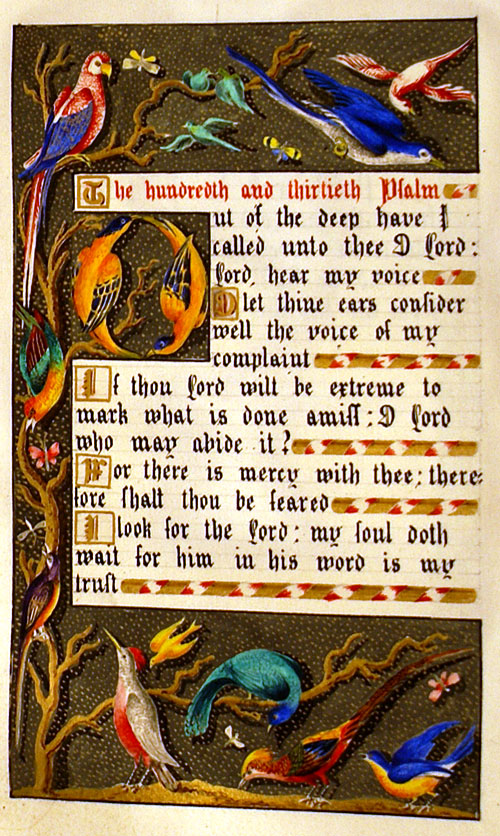 The hundredth and thirtieth Pſalm
Out of the deep have I
called unto thee O Lord:
Lord, hear my voice
O let thine ears conſider
well the voice of my
complaint
If thou Lord wilt be extreme to
mark what is done amiſſ: O Lord
who may abide it?
For there is mercy with thee; there=
fore ſhalt thou be feared
I look for the Lord: my ſoul doth
wait for him in his word is my
truſt